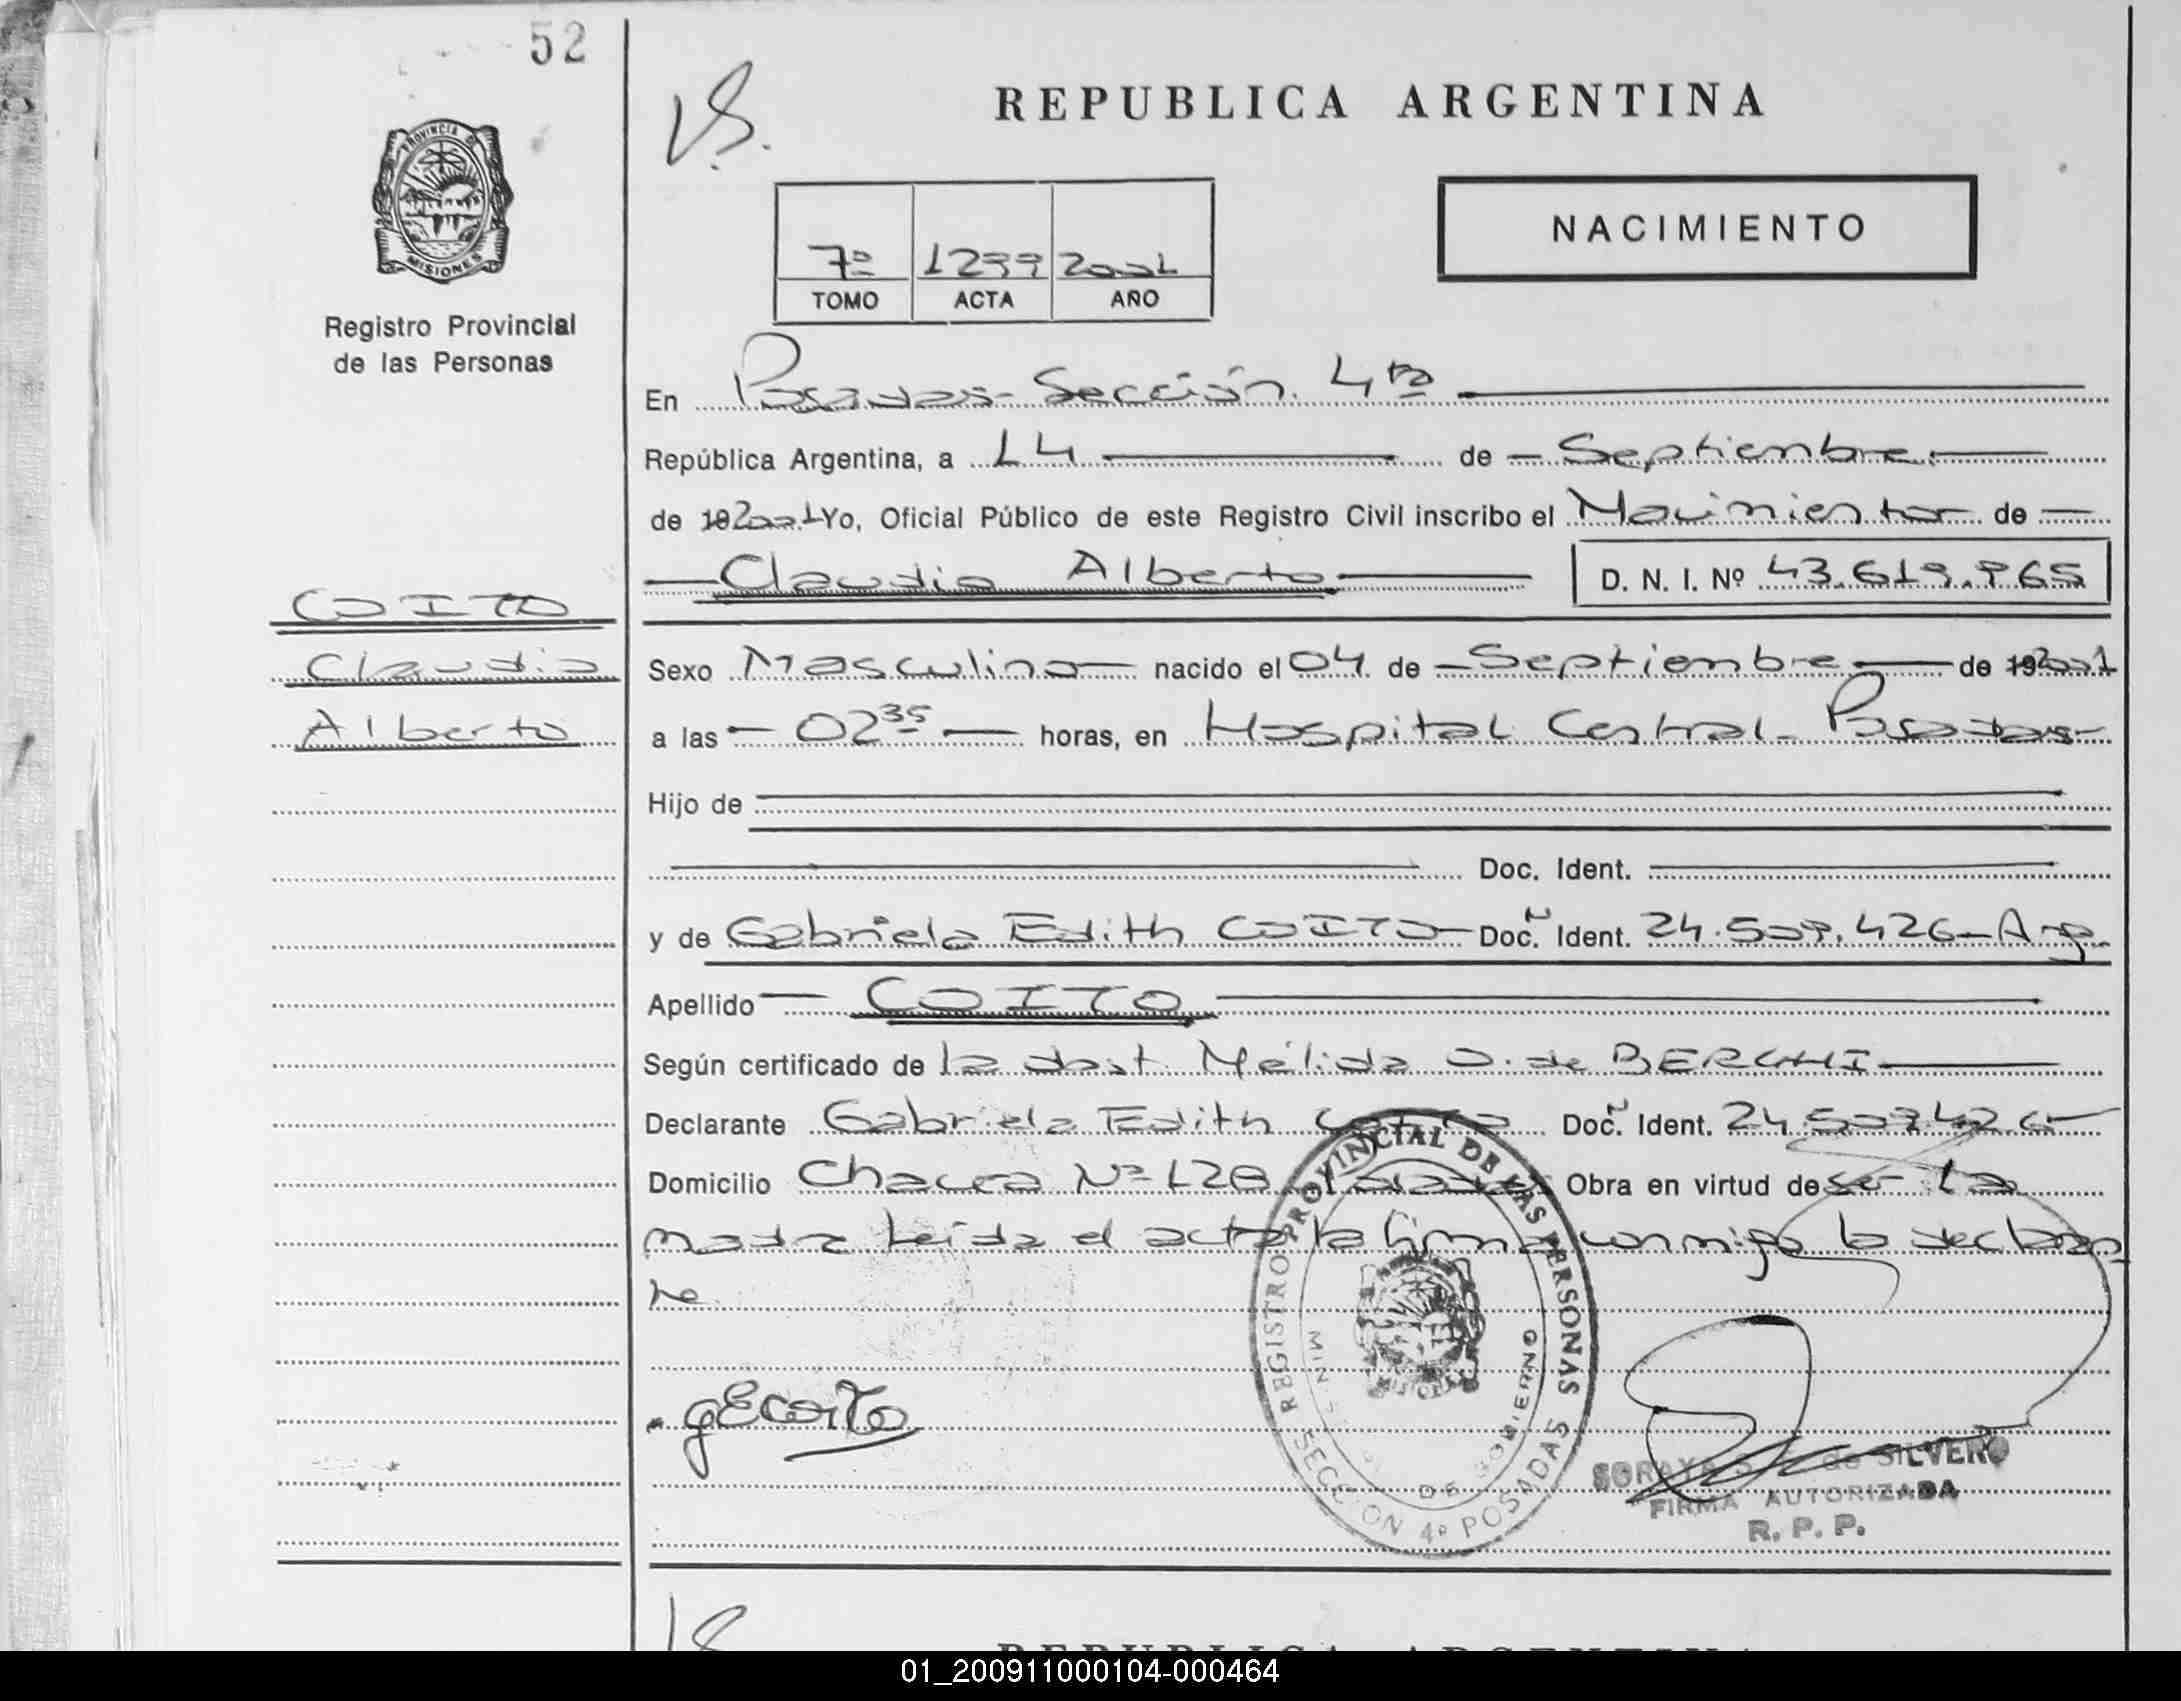 52
V.S.
REPUBLICA ARGENTINA
PROVINCIA DE
MISIONES
Registro Provincial
de las Personas
NACIMIENTO
7º 1299 2001
TOMO ACTA AÑO
En Posadas - Sección 4ta
República Argentina, a 14 de Septiembre
de 19 2001 Yo, Oficial Público de este Registro Civil inscribo el Nacimiento de
Claudio Alberto D. N. I. Nº 43.619.865
COITO
Claudio
Alberto
Sexo Masculino nacido el 04 de Septiembre de 19 2001
a las 02 35 horas, en Hospital Central - Posadas
Hijo de
Doc. Ident.
y de Gabriela Edith COITO Doc. N Ident. 24.509.426 - Arg.
Apellido COITO
Según certificado de la dost. Nélida O. de BERGHI
Declarante Gabriela Edith Coito Doc. N Ident. 24.509.426
Domicilio Chacra Nº 128 Posadas Obra en virtud de ser la
madre Leída el acta la firma conmigo la declaran
te
gECoiTo
REGISTRO PROVINCIAL DE LAS PERSONAS
DE GOBIERNO
SECCION 4º POSADAS
SORAYA de SILVERO
FIRMA AUTORIZADA
R. P. P.
REPUBLICA ARGENTINA
01_200911000104-000464